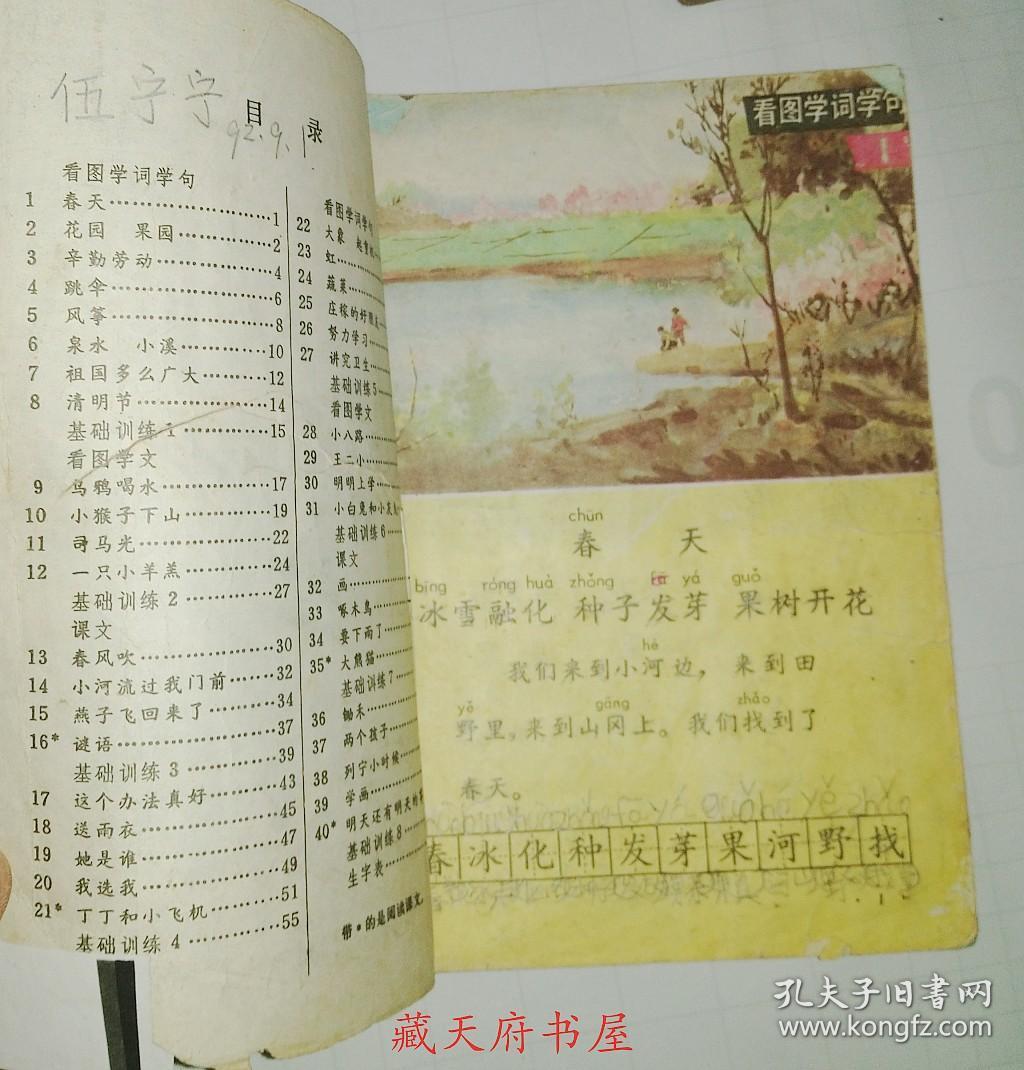 伍宁宁
目 录
92.9.1
看图学词学句
1 春天……………………1
2 花园 果园……………2
3 辛勤劳动………………4
4 跳伞……………………6
5 风筝……………………8
6 泉水 小溪……………10
7 祖国多么广大…………12
8 清明节…………………14
基础训练1……………15
看图学文
9 乌鸦喝水………………17
10 小猴子下山……………19
11 司马光…………………22
12 一只小羊羔……………24
基础训练2……………27
课文
13 春风吹…………………30
14 小河流过我门前………32
15 燕子飞回来了…………34
16* 谜语……………………37
基础训练3……………39
17 这个办法真好…………43
18 送雨衣…………………45
19 她是谁…………………47
20 我选我…………………49
21* 丁丁和小飞机…………51
基础训练4……………55
看图学词学句
22 大象 起重机
23 虹
24 蔬菜
25 庄稼的好朋友
26 努力学习
27 讲究卫生
基础训练5
看图学文
28 小八路
29 王二小
30 明明上学
31 小白兔和小灰兔
基础训练6
课文
32 画
33 啄木鸟
34 要下雨了
35* 大熊猫
基础训练7
36 锄禾
37 两个孩子
38 列宁小时候
39 学画
40* 明天还有明天的
基础训练8
生字表
带*的是阅读课文
看图学词学句
1
chūn
春 天
bīng róng huà zhǒng fā yá guǒ
冰雪融化 种子发芽 果树开花
hé
我们来到小河边，来到田
yě gāng zhǎo
野里，来到山冈上。我们找到了
春天。
春冰化种发芽果河野找
孔夫子旧书网
www.kongfz.com
藏天府书屋